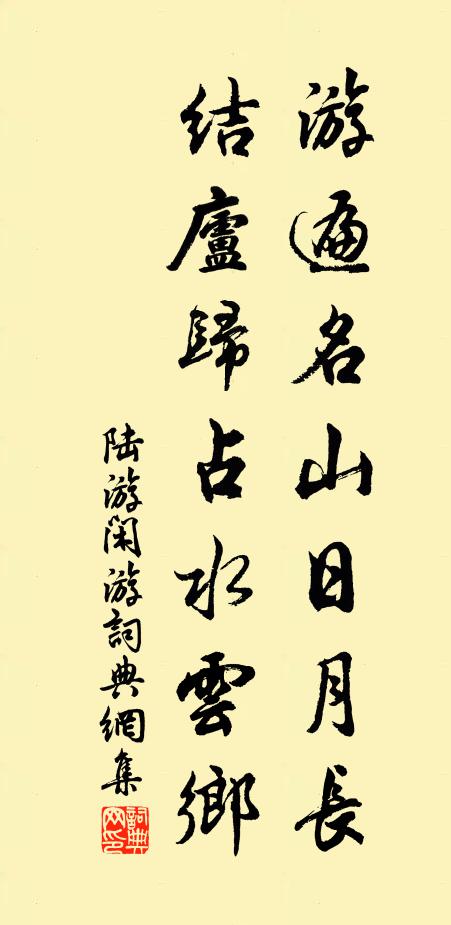 游遍名山日月長
結廬歸占水雲鄉
陆游閑游詞典網集
詞典網印